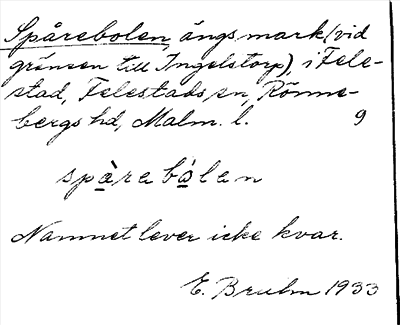 Spårebolen, ängsmark (vid
gränsen till Ingelstorp), i Fele-
stad, Felestads sn, Rönne-
bergs hd, Malm. l. 9
spàrebòlen
Namnet lever icke kvar.
E. Bruhm 1933